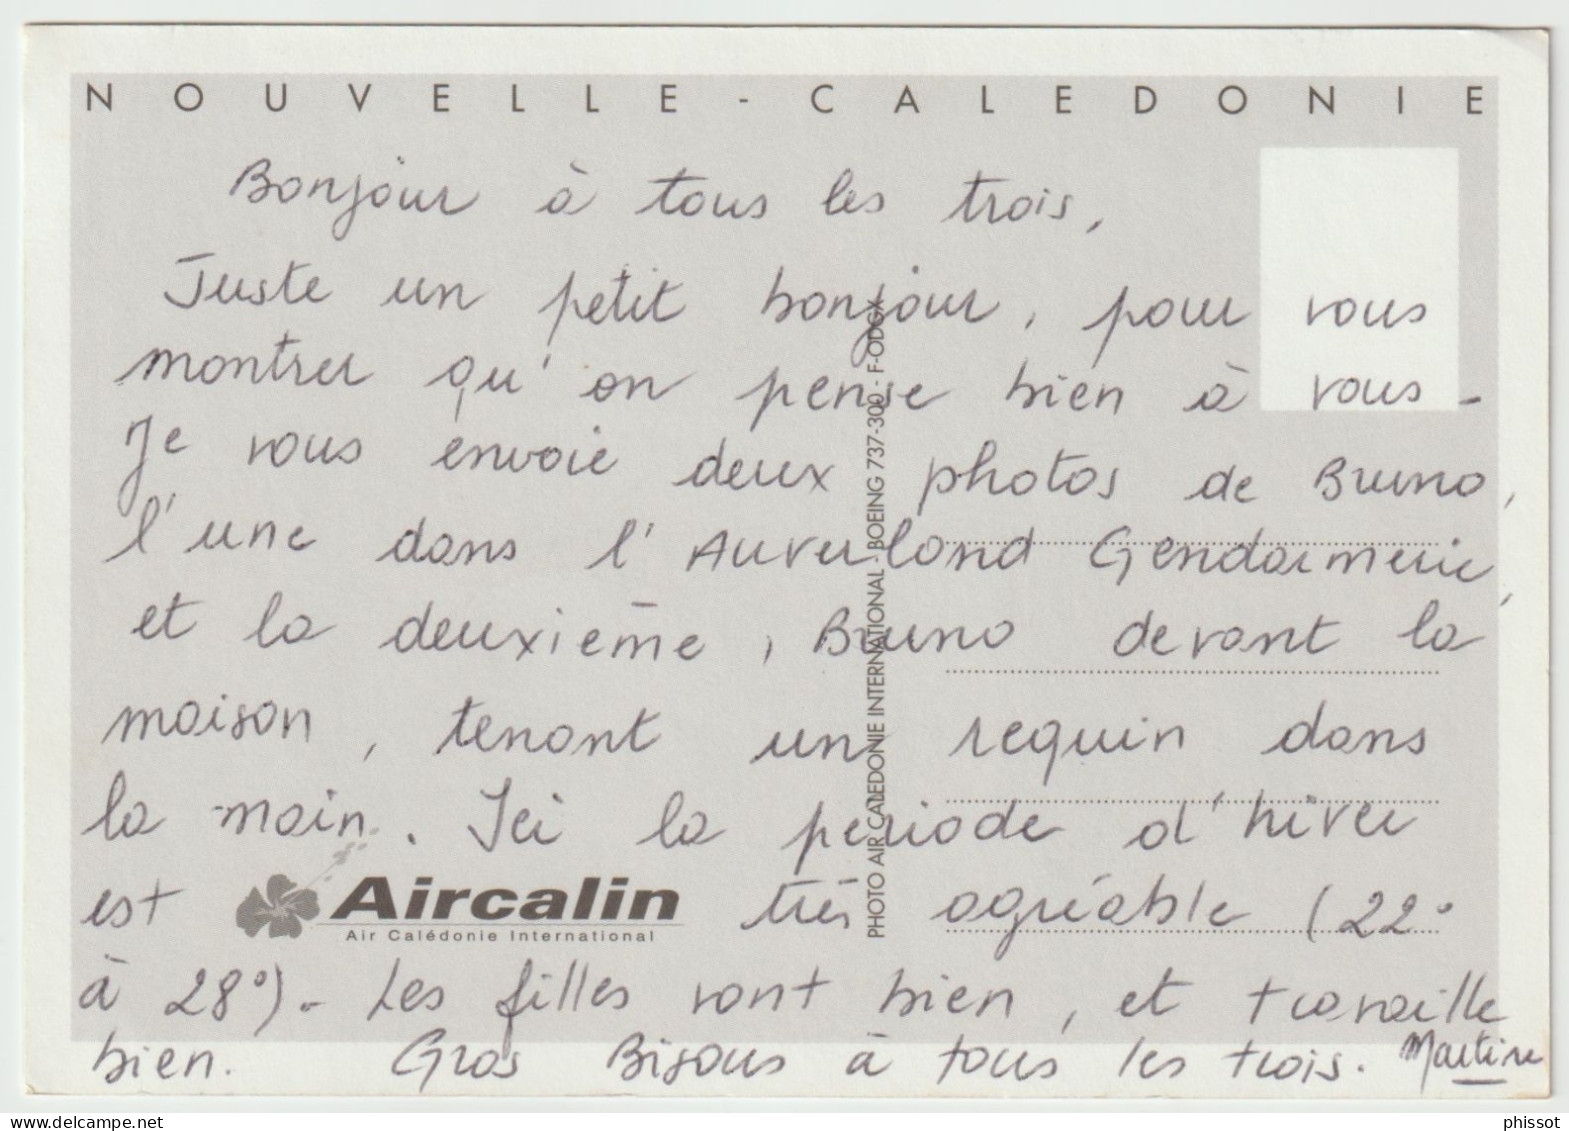 NOUVELLE-CALEDONIE
Bonjour à tous les trois,
Juste un petit bonjour, pour vous
montrer qu'on pense bien à vous -
Je vous envoie deux photos de Bruno,
l'une dans l'Auverland Gendarmerie,
et la deuxième, Bruno devant la
maison, tenant un requin dans
la main. Ici la periode d'hiver
est très agréable (22°
à 28°) - Les filles vont bien, et travaille
bien. Gros Bisous à tous les trois. Martine
Aircalin
Air Calédonie International
PHOTO AIR CALEDONIE INTERNATIONAL - BOEING 737-300 - F-ODGX
phissot